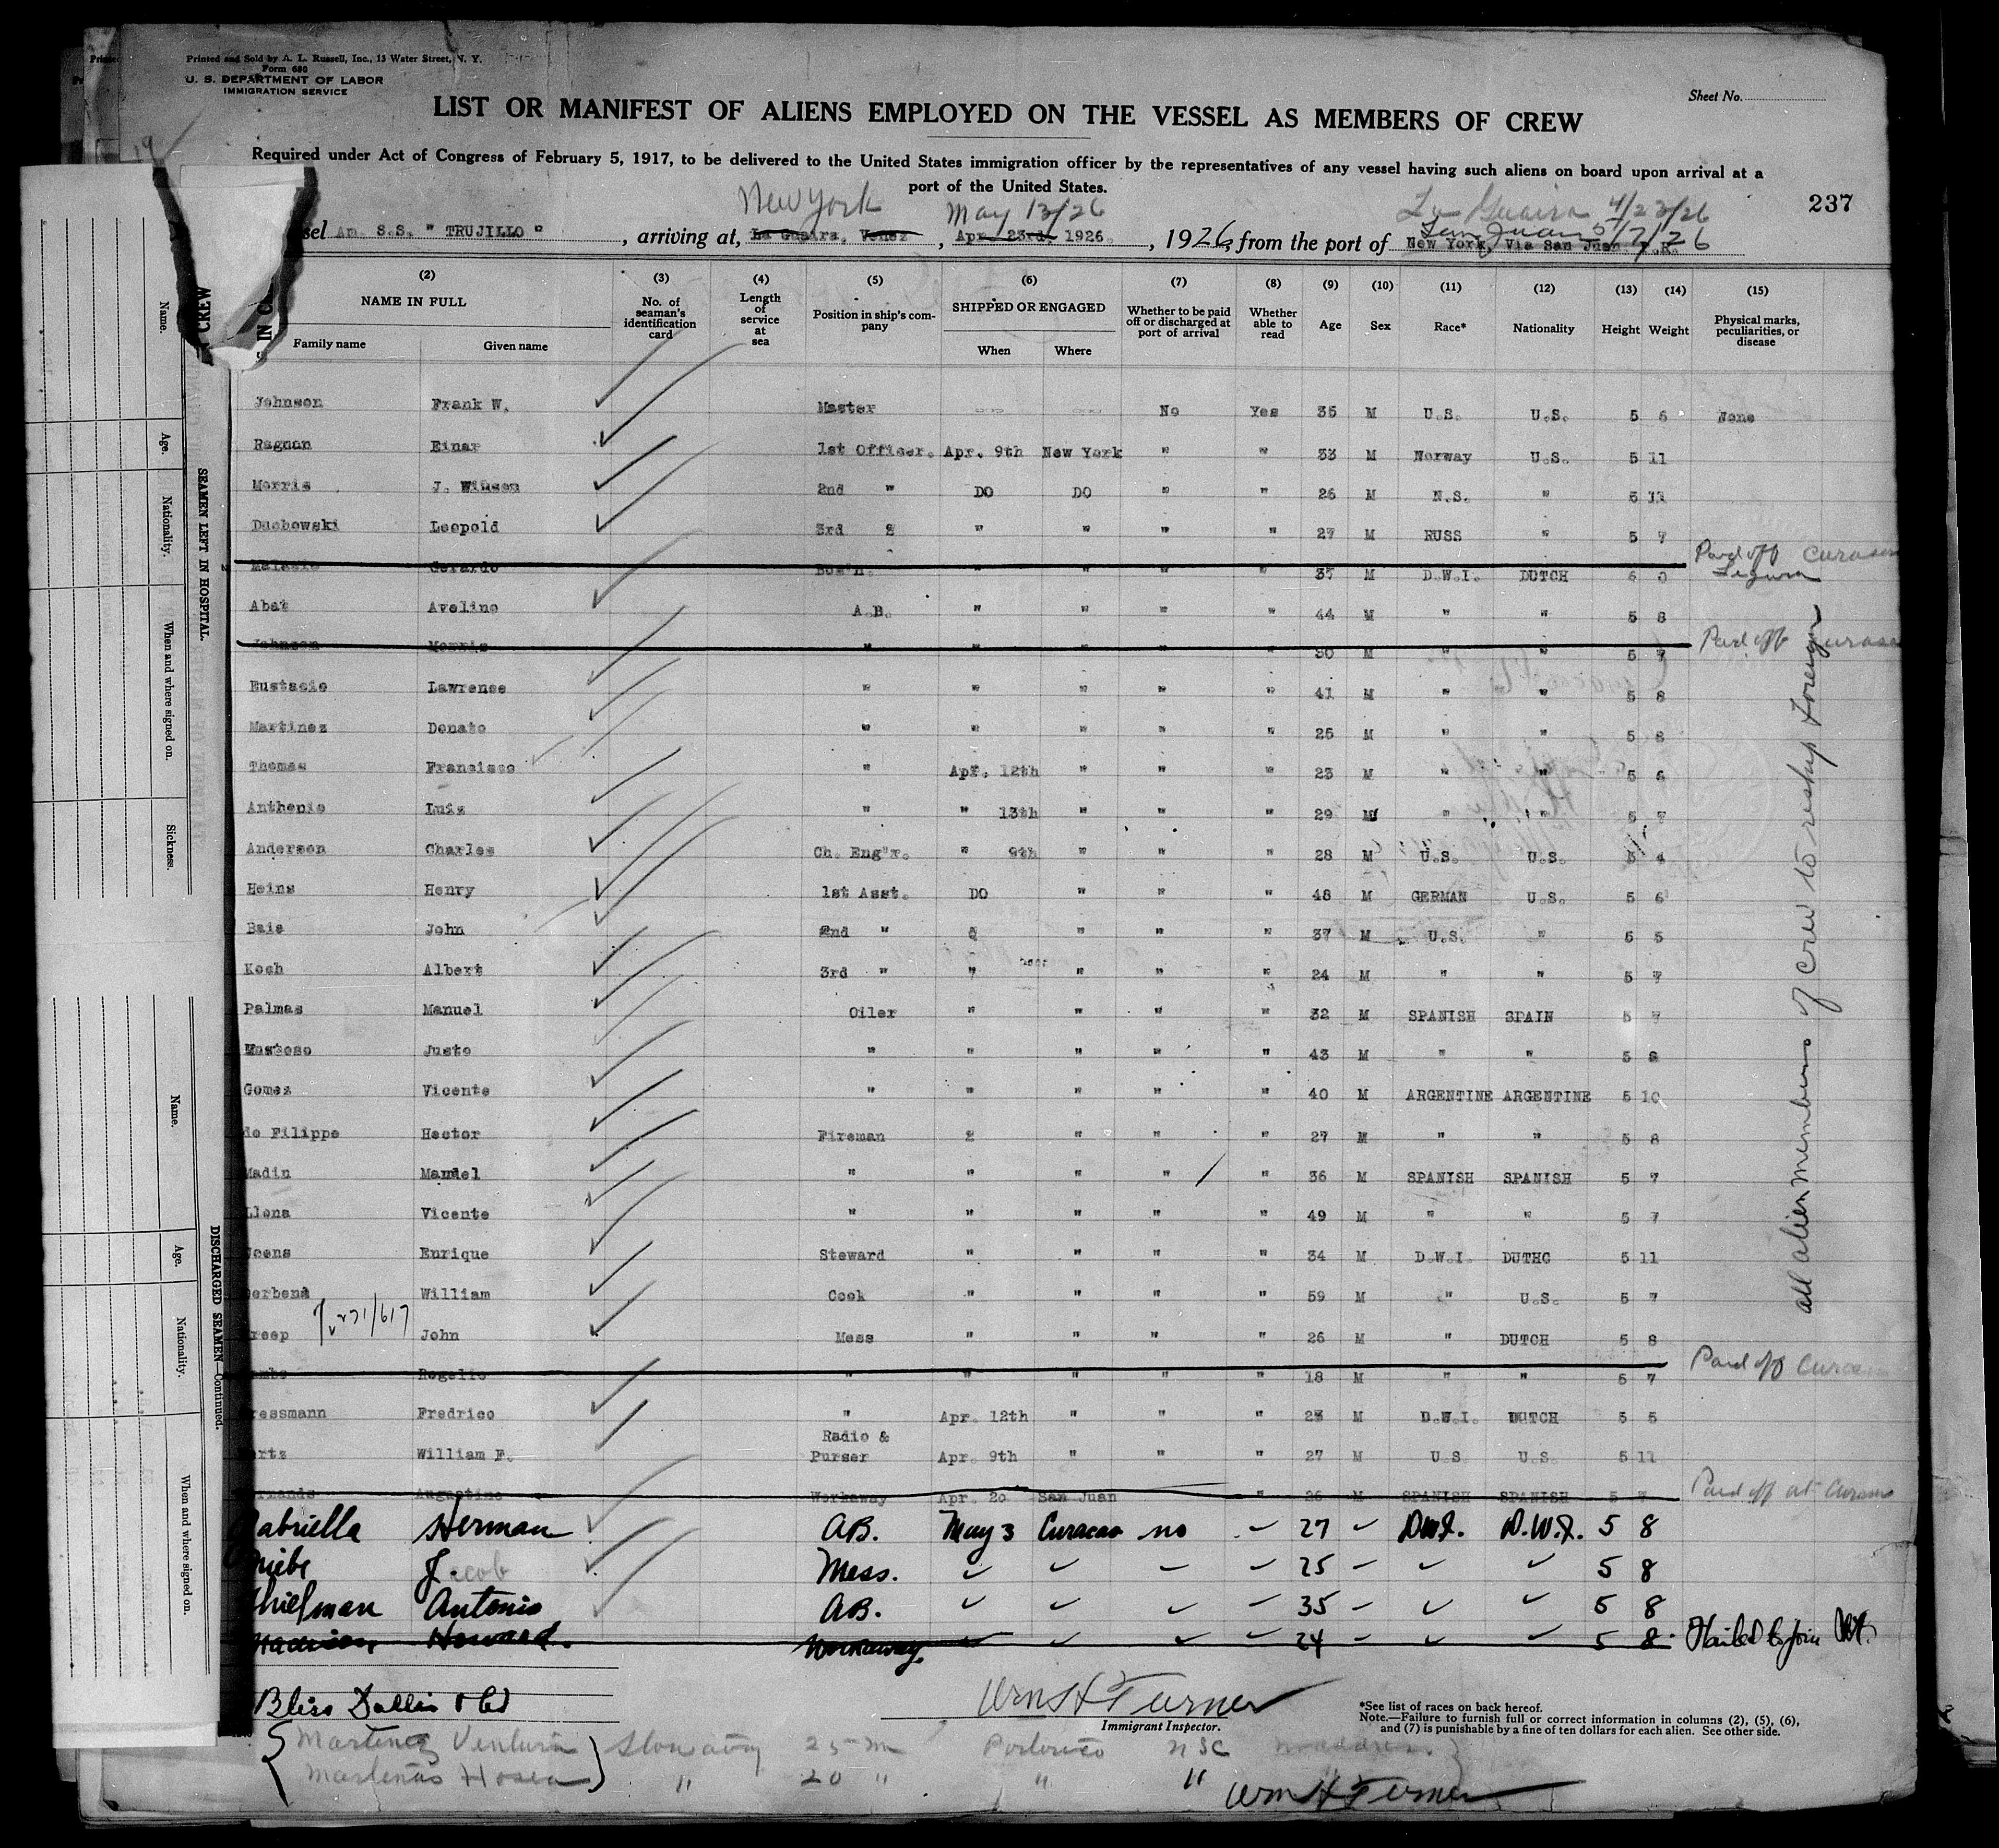 Printed and Sold by A. L. Russell, Inc., 13 Water Street, N. Y.
Form 680
U. S. DEPARTMENT OF LABOR
IMMIGRATION SERVICE
Sheet No.
LIST OR MANIFEST OF ALIENS EMPLOYED ON THE VESSEL AS MEMBERS OF CREW
Required under Act of Congress of February 5, 1917, to be delivered to the United States immigration officer by the representatives of any vessel having such aliens on board upon arrival at a
port of the United States.
237
New York May 13/26 La Guaira 4/23/26
San Juan 5/7/26
sel Am. S.S. " TRUJILLO " , arriving at, La Guaira, Venez , Apr. 23rd, 1926. , 1926, from the port of New York, Via San Juan P.R.
(2) (3) (4) (5) (6) (7) (8) (9) (10) (11) (12) (13) (14) (15)
NAME IN FULL No. of seaman's identification card Length of service at sea Position in ship's company SHIPPED OR ENGAGED Whether to be paid off or discharged at port of arrival Whether able to read Age Sex Race* Nationality Height Weight Physical marks, peculiarities, or disease
Family name Given name When Where
Johnson Frank W. Master -- -- No Yes 35 M U.S. U.S. 5 6 None
Ragnan Einar 1st Officer. Apr. 9th New York " " 33 M Norway U.S. 5 11
Morris J. Wilson 2nd " DO DO " " 26 M N.S. " 5 11
Duchowski Leopold 3rd " " " " 27 M RUSS " 5 7
Gerardo Bos'n. " " " " 37 M D.W.I. DUTCH 6 0 Paid off Curacao
Abat Avelino A.B. " " " " 44 M " " 5 8
Johnson Morris " " 30 M " " 5 7 Paid off Curacao
Eustacio Lawrense " " " " " 41 M " " 5 8
Martinez Donato " " " " " 25 M " " 5 8
Thomas Francisco " Apr. 12th " " " 23 M " " 5 6
Anthonio Luiz " " 13th " " " 29 M " " 5 7
Anderson Charles Ch. Eng"r. " 9th " " " 28 M U.S. U.S. 5 4
Heins Henry 1st Asst. DO " " 48 M GERMAN U.S. 5 6
Bais John 2nd " " " " 37 M U.S. " 5 5
Koch Albert 3rd " " " " " 24 M " " 5 7
Palmas Manuel Oiler " " " " 32 M SPANISH SPAIN 5 7
Justo " " " " " 43 M " " 5 8
Gomez Vicente " " " " " 40 M ARGENTINE ARGENTINE 5 10
de Filippe Hector Fireman " " " 27 M " " 5 8
Madin Manuel " " " " " 36 M SPANISH SPANISH 5 7
Llona Vicente " " " " " 49 M " " 5 7
Enrique Steward " " " " 34 M D.W.I. DUTHC 5 11
William Cook " " " " 59 M " U.S. 5 7
John Mess " " " " 26 M " DUTCH 5 8
Rogelio " " " " " 18 M " " 5 7 Paid off Curacao
ressmann Fredrico " Apr. 12th " " " 23 M D.W.I. DUTCH 5 5
Radio &
William F. Purser Apr. 9th " " " 27 M U.S U.S. 5 11
Augustino Workaway Apr. 20 San Juan " 26 M SPANISH SPANISH 5 7 Paid off at Curacao
Gabriella Herman AB. May 3 Curacao no 27 DWI. D.W.I. 5 8
Jacob Mess. 25 5 8
Thielman Antonio AB. 35 5 8
Madison Howard. Workaway. 24 5 8 Failed to join
all alien members of crew to reship foreign
Wm H Turner
Immigrant Inspector.
*See list of races on back hereof.
Note.—Failure to furnish full or correct information in columns (2), (5), (6),
and (7) is punishable by a fine of ten dollars for each alien. See other side.
Bliss Dallis & Co
Martinez Ventura Stowaway 25 m Portorico
Hosea " 20 " " "
Wm H Turner
CREW
SEAMEN LEFT IN HOSPITAL.
Name.
Age.
Nationality.
When and where signed on.
Sickness.
DISCHARGED SEAMEN—Continued.
Name.
Age.
Nationality.
When and where signed on.